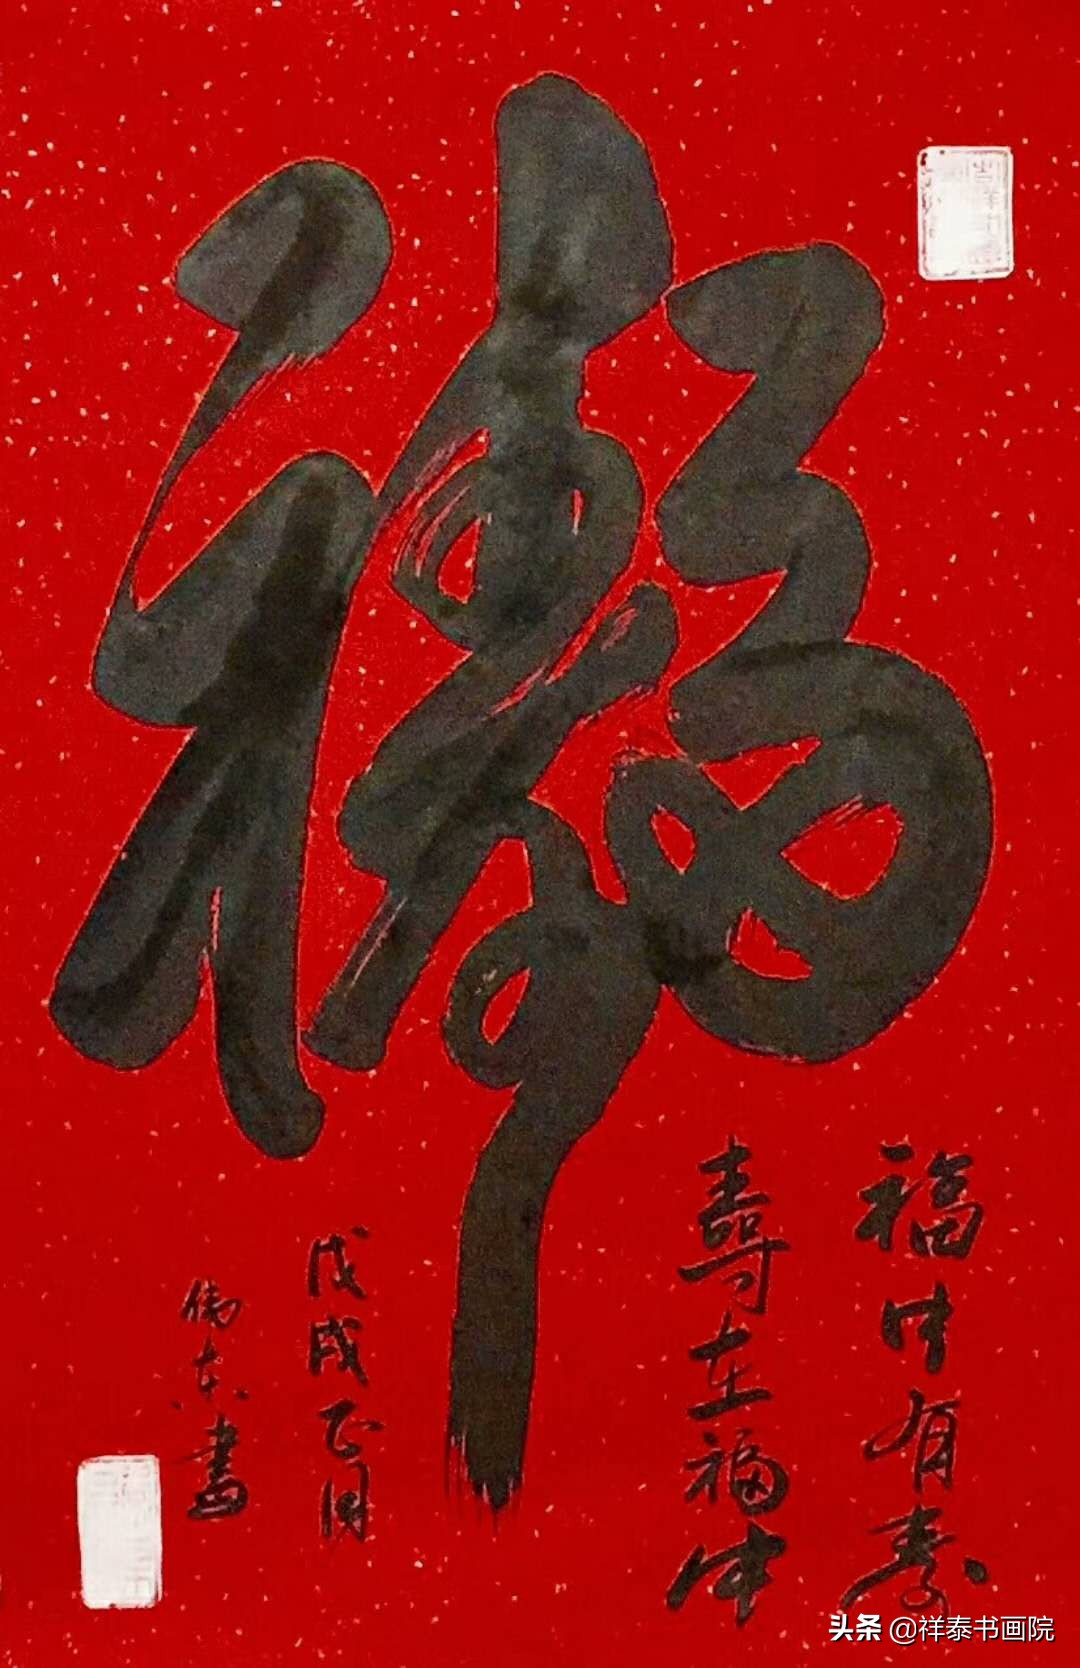 福
福中有寿
壽在福中
戊戌正月
伟东書
头条 @祥泰书画院